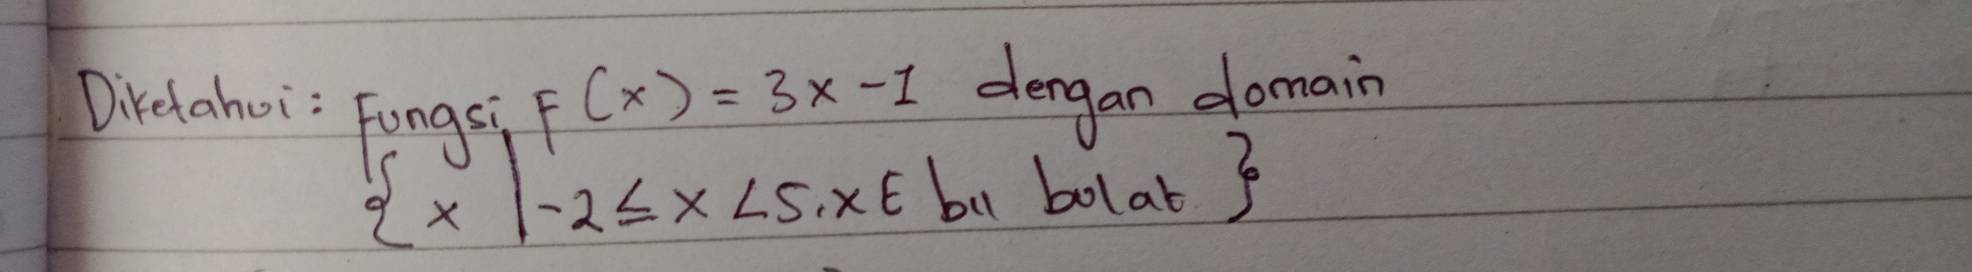 Diketahui: Fungsi F(x) = 3x - 1 dengan domain
{x | -2 ≤ x < 5, x ∈ bil bulat}